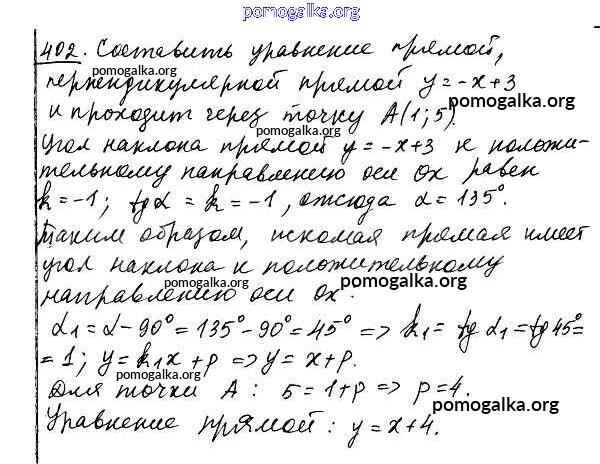 pomogalka.org
402. Составить уравнение прямой,
перпендикулярной прямой y = -x + 3
pomogalka.org
pomogalka.org
и проходит через точку A(1; 5).
pomogalka.org
Угол наклона прямой y = -x + 3 к положи-
тельному направлению оси Ox равен
k = -1; tg α = k = -1, отсюда α = 135°.
Таким образом, искомая прямая имеет
угол наклона к положительному
pomogalka.org
pomogalka.org
направлению оси Ox:
α₁ = α - 90° = 135° - 90° = 45° => k₁ = tg α₁ = tg 45° =
pomogalka.org
= 1; y = k₁x + p => y = x + p.
pomogalka.org
Для точки A: 5 = 1 + p => p = 4.
pomogalka.org
Уравнение прямой: y = x + 4.
pomogalka.org